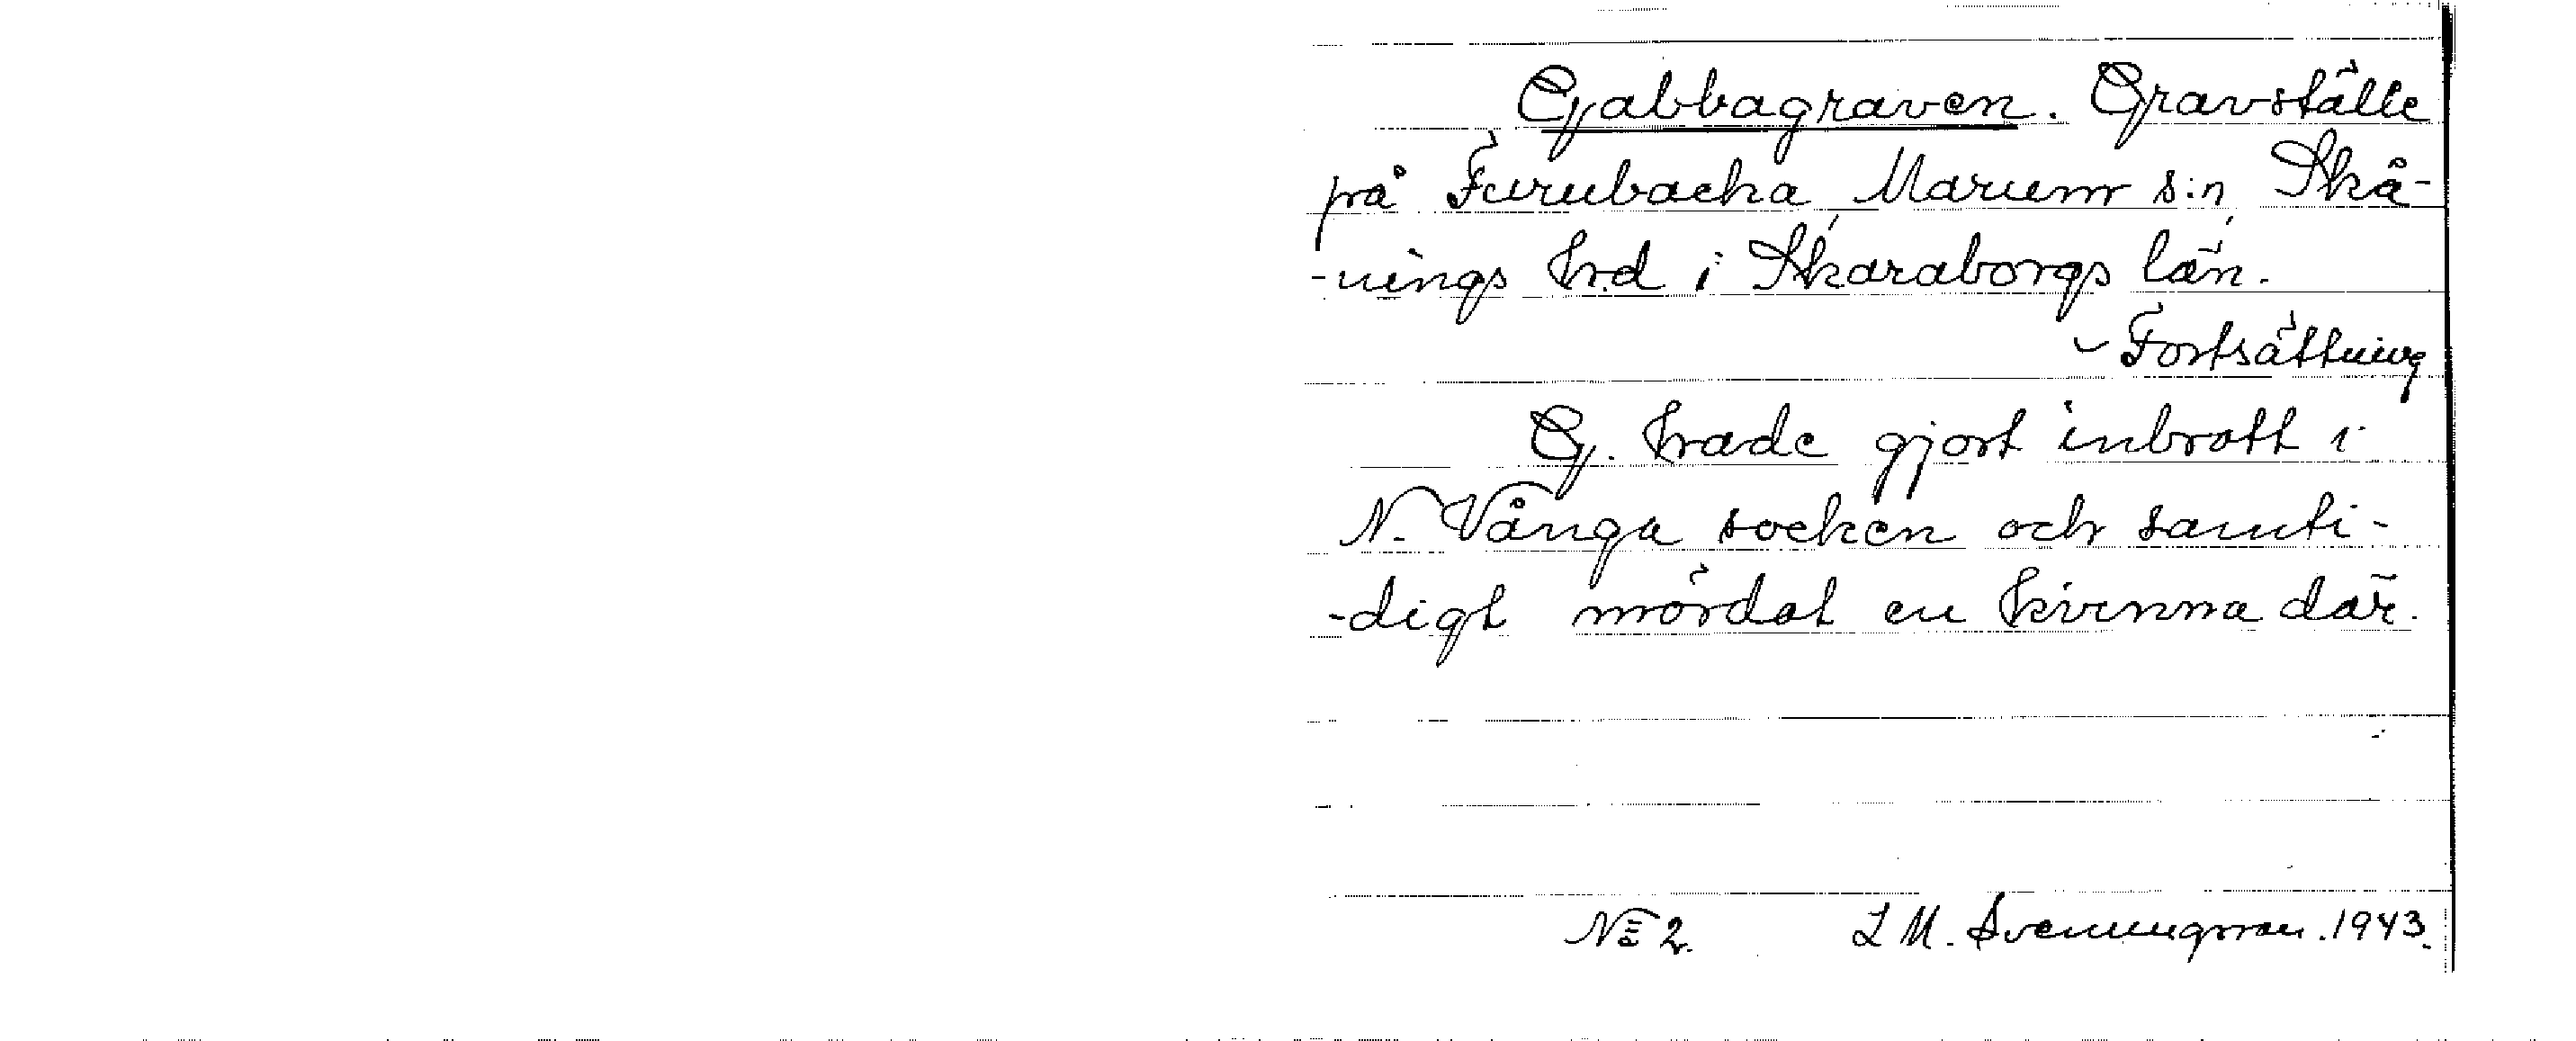 Gabbagraven. Gravställe
på Furubacka, Marum s:n, Skå-
-nings h.d i Skaraborgs län.
Fortsättning
G. hade gjort inbrott i
N. Vånga socken och samti-
-digt mördat en kvinna där.
No 2. L M. Svenungsson. 1943.